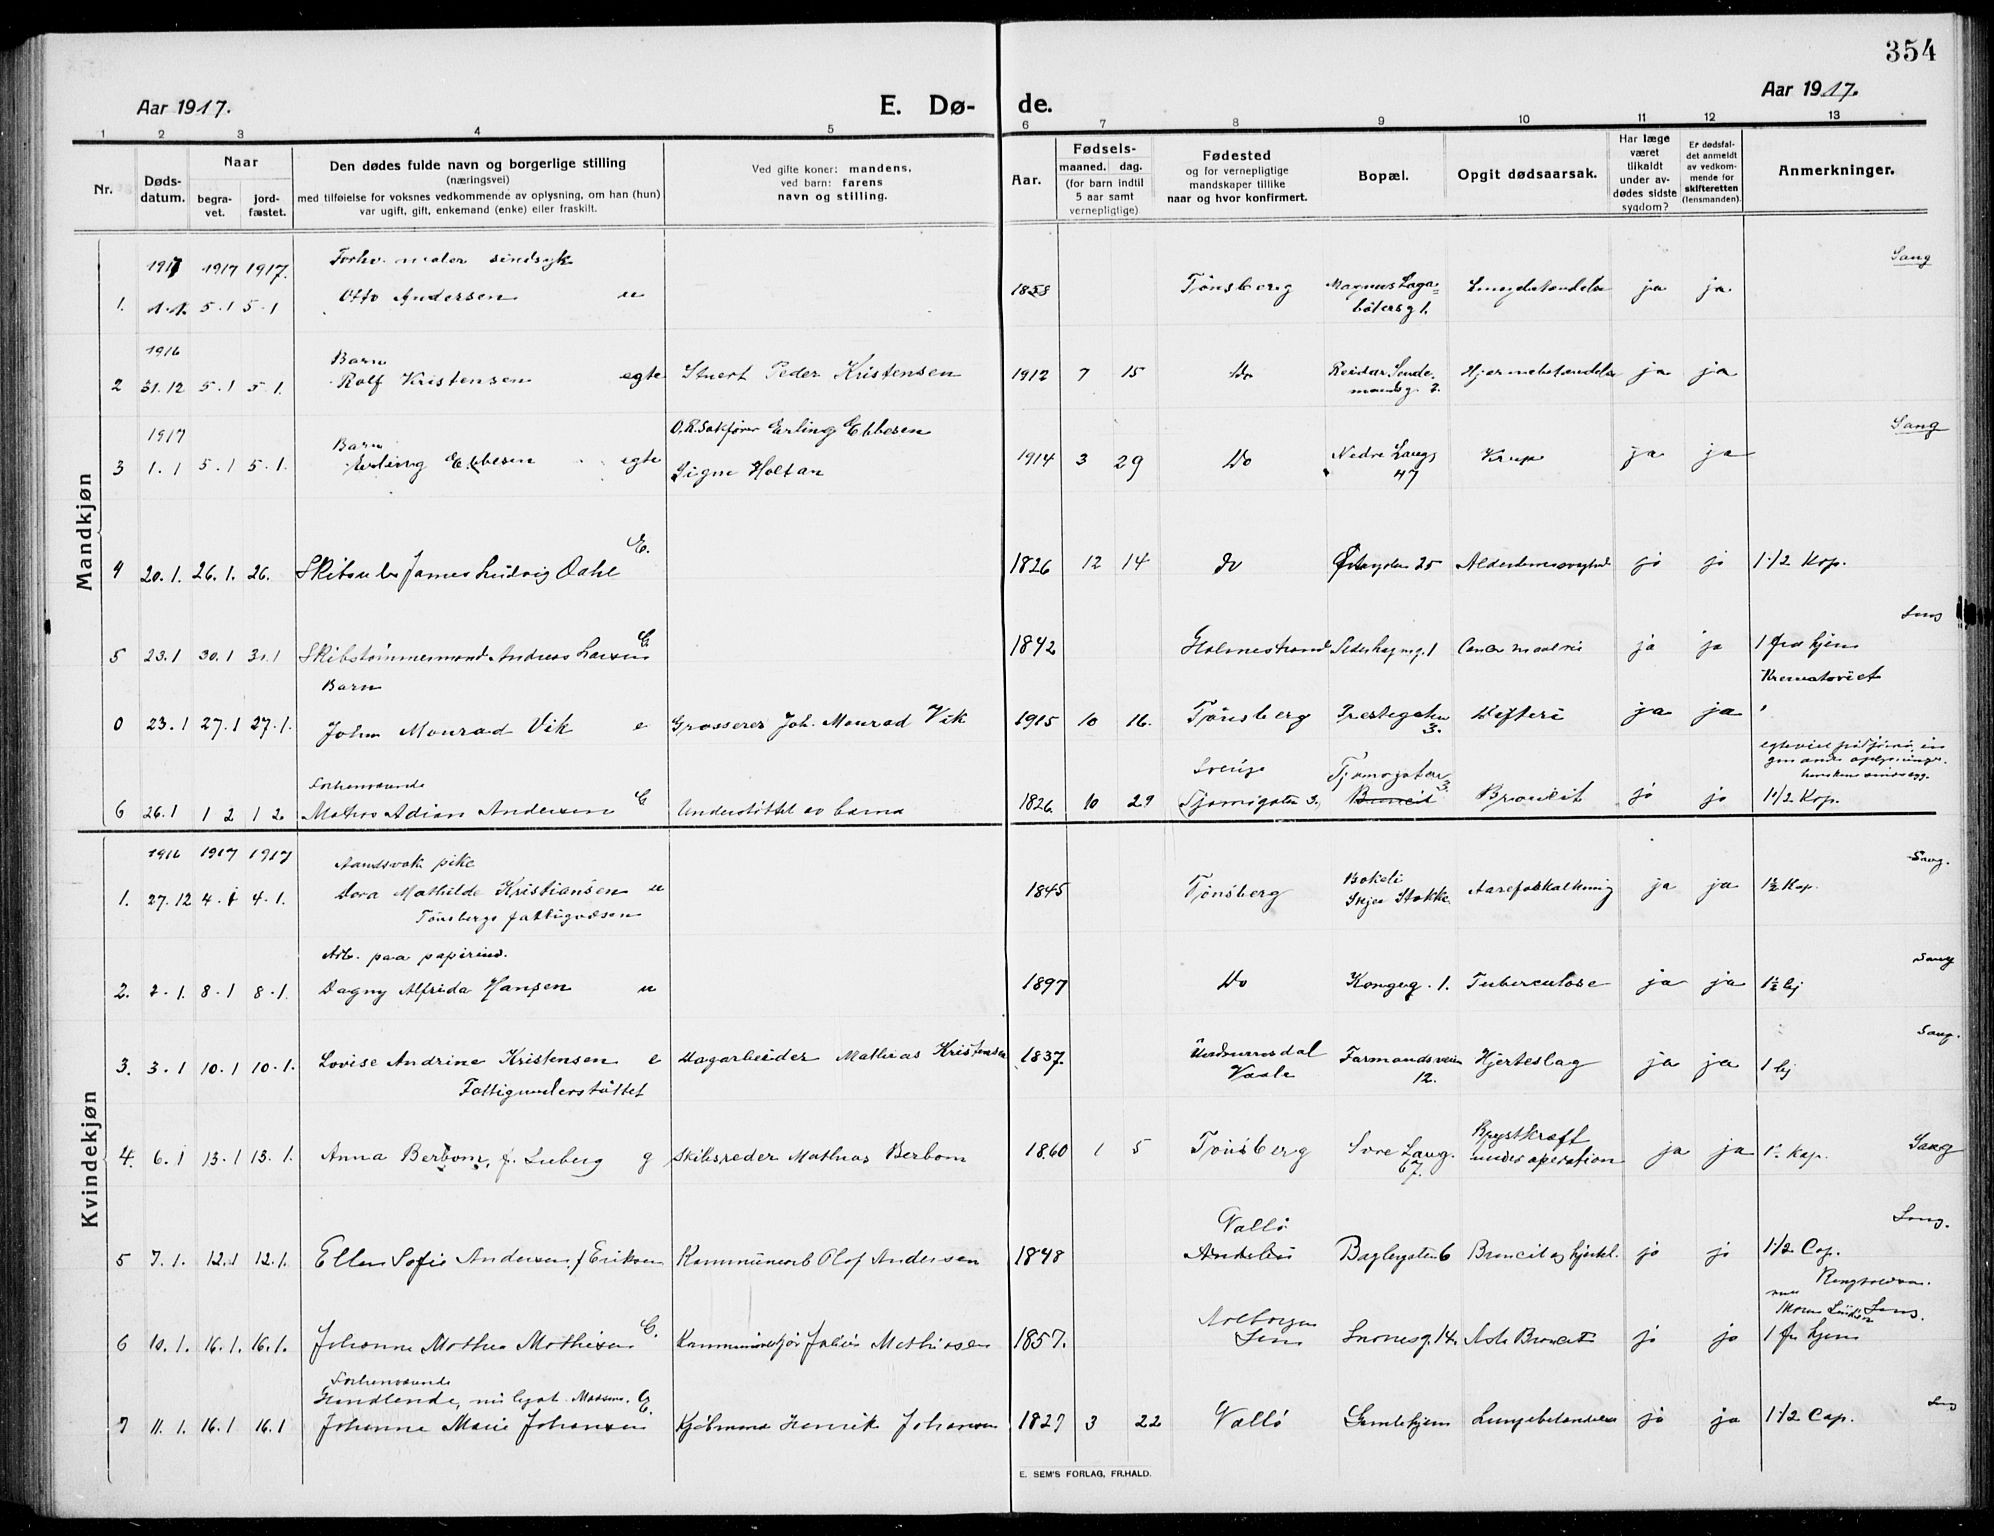 354
Aar 1917.
E. Dø-
de.
Aar 1917.
1 2 3 4 5 6 7 8 9 10 11 12 13
Nr.
Døds-
datum.
Naar
begra-
vet.
jord-
fæstet.
Den dødes fulde navn og borgerlige stilling
(næringsvei)
med tilføielse for voksnes vedkommende av oplysning, om han (hun)
var ugift, gift, enkemand (enke) eller fraskilt.
Ved gifte koner: mandens,
ved barn: farens
navn og stilling.
Aar.
Fødsels-
maaned. dag.
(for barn indtil
5 aar samt
vernepligtige)
Fødested
og for vernepligtige
mandskaper tillike
naar og hvor konfirmert.
Bopæl.
Opgit dødsaarsak.
Har læge
været
tilkaldt
under av-
dødes sidste
sygdom?
Er dødsfal-
det anmeldt
av vedkom-
mende for
skifteretten
(lensmanden).
Anmerkninger.
Mandkjøn
1917 1917 1917. Forhv. maler sindsyk Sang
1. 1.1. 5.1 5.1 Otto Andersen u 1858 Tønsberg Magnus Laga-
bøtersg 1. Lungebetændelse ja ja
1916 Barn
2 31.12 5.1 5.1. Rolf Kristensen egte Stuert Peder Kristensen 1912 7 15 Do Reidar Sende-
mandsg 2. Hjernebetændelse ja ja
1917 Barn O.R.Sakfører Erling Ebbesen Sang
3 1.1 5.1 5.1. Erling Ebbesen egte Signe Holtan 1914 3 29 Do Nedre Langg
47 Krup ja ja
4 20.1. 26.1. 26. James Ludvig Dahl E. 1826 12 14 do 25 ja ja 1 1/2 Kop.
5 23.1 30.1 31.1 Skibstømmermand Andreas Larsen E 1842 Holmestrand ja ja 1 fra hjem
Barn Krematoriet
0 23.1 27.1 27.1. John Monrad Vik e Grosserer Joh. Monrad Vik 1915 10 16. Tønsberg Prestegaten
3. Difteri ja ja
Forhenværende Sverige
6 26.1 1 2 1 2. Matros Adrian Andersen E Understøttet av barna 1826 10 29 Tjømøgaten 3. Broncit ja ja 1 1/2 Kop.
Kvindekjøn
1916 1917 1917 Aandssvak pike Sang.
1. 27.12 4.1 4.1. Dora Mathilde Kristiansen u 1845 Tønsberg Bokeli
Skjee Stokke. Aareforkalkning ja ja 1 1/2 Kap.
Tønsbergs fattigvæsen
Arb. paa papirind. Sang
2. 2.1. 8.1 8.1. Dagny Alfrida Hansen u 1897 Do Kongsg. 1. Tuberculose ja ja 1 1/2 hj
Sang.
3. 3.1 10.1 10.1. Lovise Andrine Kristensen e Dagarbeider Mathias Kristensen 1837. Undrumsdal
Vaale Farmandsveien
12. Hjerteslag ja ja 1 hj
Fattigunderstøttet
4. 6.1 13.1 13.1. Anna Berbom, f. Luberg g Skibsreder Mathias Berbom 1860 1 5 Tønsberg Svre Lang.
67. Brystkræft
under operation ja ja Kap. Sang
Vallø
5 7.1. 12.1 12.1. Ellen Sofie Andersen f Eriksen Kommunearb Olof Andersen 1848 Baglergaten 6 Broncit og hjertel. ja ja 1 1/2 Cap.
6 10.1. 16.1. 16.1. Johanne Mathea Mathisen E. Julius Mathisen 1857. Snorresg. 14. Broncit ja ja 1 fra hjem
Forhenværende
7 11.1. 16.1 16.1 Johanne Marie Johansen E. Kjøbmand Henrik Johansen 1827 3 22 Vallø Gamlehjem Lungebetændelse ja ja 1 1/2 Cap.
E. SEM'S FORLAG, FR.HALD.